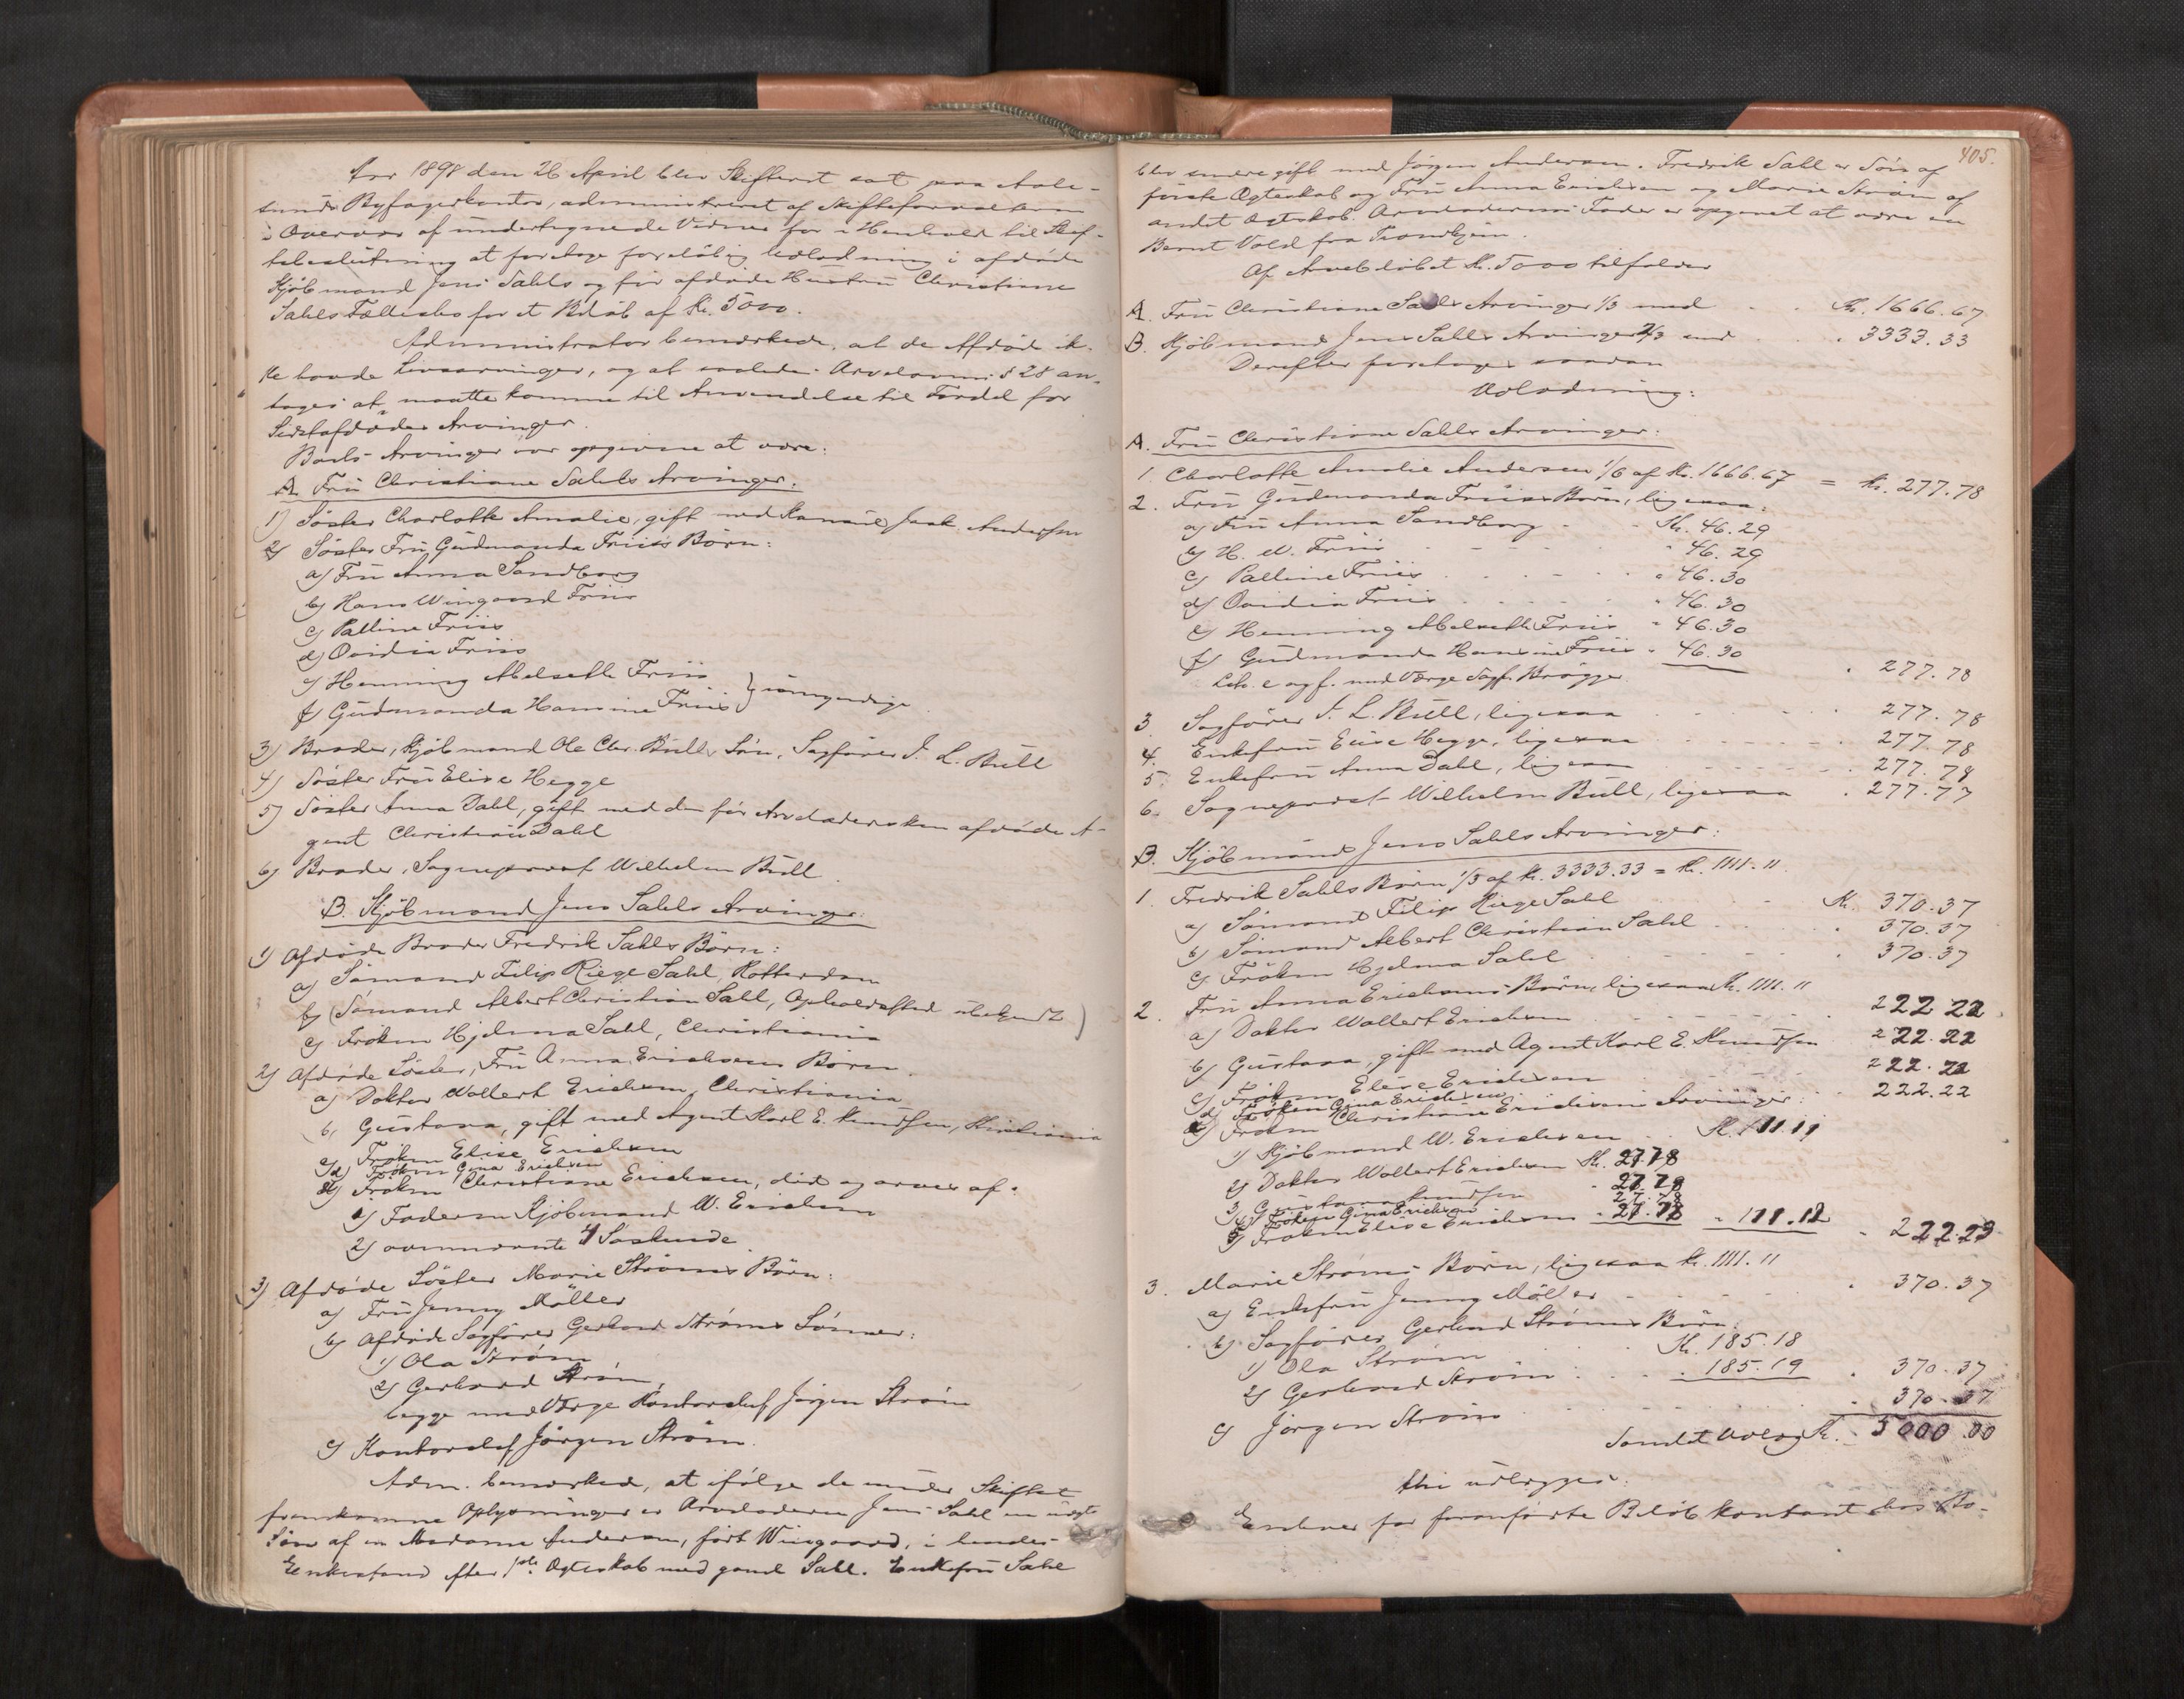 Aar 1898 den 26 April blev Skifteret sat paa Aale-
sunds Byfogedkontor, administreret af Skifteforvalteren
i Overvær af undertegnede Vidner for i Henhold til Skif-
tebeslutning at foretage foreløbig Udlodning i afdøde
Kjøbmand Jens Sahls og før afdøde Hustru Christiane
Sahls Fællesbo for et Beløb af Kr. 5000.
Administrator bemærkede, at de Afdøde ik-
ke havde Livsarvinger, og at saaledes Arvelovens § 28 an-
tages at maatte komme til Anvendelse til Fordel for
Førstafdødes Arvinger.
Boets Arvinger var opgivne at være:
A. Fru Christiane Sahls Arvinger:
1) Søster Charlotte Amalie, gift med Jaak Andersen
2) Søster Fru Gudmanda Friis's Børn:
a) Fru Anna Sandborg
b) Hans Wingaard Friis
c) Palline Friis
d) Ovidia Friis
e) Henning Abelseth Friis
f) Gudmanda Hansine Friis } umyndige
3) Broder, Kjøbmand Ole Chr. Bulls Søn, Sagfører J. L. Bull
4) Søster Fru Elise Hegge
5) Søster Anna Dahl, gift med den før Arveladersken afdøde A-
gent Christian Dahl
6) Broder, Sogneprest Wilhelm Bull
B. Kjøbmand Jens Sahls Arvinger:
1) Afdøde Broder Fredrik Sahls Børn:
a) Sømand Filip Riege Sahl, Rotterdam
b) (Sømand Albert Christian Sahl, Opholdssted ubekjendt)
c) Frøken Hjelma Sahl, Christiania
2) Afdøde Søster, Fru Anna Erichsens Børn.
a) Doktor Wollert Erichsen, Christiania
b, Gustava, gift med Agent Karl E. Knudsen, Kristiania
c) Frøken Elise Erichsen
d) Frøken Gina Erichsen
e) Frøken Christiane Erichsen, død og arves af:
1) Faderen Kjøbmand W. Erichsen
2) ovennævnte 4 Søskende
3) Afdøde Søster Marie Strøms Børn:
a) Fru Jenny Møller
b) Afdøde Sagfører Gerhard Strøms Sønner:
1) Ola Strøm
2) Gerhard Strøm,
begge med Værge Kontorchef Jørgen Strøm
c) Kontorchef Jørgen Strøm.
Adm. bemærkede, at ifølge de under Skiftet
fremkomne Oplysninger er Arveladeren Jens Sahl en uægte
Søn af en Madame Andersen, født Wingaard, i hendes
Enkestand efter 1ste Ægteskab med gamle Sahl. Enkefru Sahl
405.
blev senere gift med Jørgen Andersen. Fredrik Sahl er Søn af
første Ægteskab og Fru Anna Erichsen og Marie Strøm af
andet Ægteskab. Arveladerens Fader er opgivet at være en
Bernt Vold fra Trondhjem.
Af Arvebeløbet Kr. 5000 tilfalder
A. Fru Christiane Sahls Arvinger 1/3 med . . Kr. 1666.67
B. Kjøbmand Jens Sahls Arvinger 2/3 med . . 3333.33
Derefter foretages saadan
Udlodning:
A. Fru Christiane Sahls Arvinger:
1. Charlotte Amalie Andersen 1/6 af Kr. 1666.67 = Kr. 277.78
2. Fru Gudmanda Friis's Børn, ligesaa:
a) Fru Anna Sandborg - - Kr. 46.29
b) H. W. Friis - - - " 46.29
c) Palline Friis . . . " 46.30
d) Ovidia Friis . . . " 46.30
e) Henning Abelseth Friis " 46.30
f) Gudmanda Hansine Friis " 46.30 . 277.78
Litr. e og f. med Værge Sagf. Brøgger
3. Sagfører J. L. Bull, ligesaa . . . 277.78
4. Enkefru Elise Hegge, ligesaa - - - 277.78
5. Enkefru Anna Dahl, ligesaa - - - 277.78
6. Sogneprest Wilhelm Bull, ligesaa . 277.77
B. Kjøbmand Jens Sahls Arvinger:
1. Fredrik Sahls Børn 1/3 af Kr. 3333.33 = Kr. 1111.11
a) Sømand Filip Riege Sahl - - Kr. 370.37
b) Sømand Albert Christian Sahl . . . 370.37
c) Frøken Hjelma Sahl . . . 370.37
2. Fru Anna Erichsens Børn, ligesaa Kr. 1111.11
a) Doktor Wollert Erichsen - - - 222.22
b) Gustava, gift med Agent Karl E. Knudsen 222.22
c) Frøken Elise Erichsen . . . 222.22
d) Frøken Gina Erichsen . . . 222.22
e) Frøken Christiane Erichsens Arvinger:
1) Kjøbmand W. Erichsen . . Kr. 111.11
2) Doktor Wollert Erichsen Kr. 27.78
3) Gustava Knudsen " 27.78
4) Frøken Gina Erichsen 27.78
5) Frøken Elise Erichsen " 27.78 " 111.12 " 222.23
3. Marie Strøms Børn, ligesaa Kr. 1111.11
a) Enkefru Jenny Møller - - - . 370.37
b) Sagfører Gerhard Strøms Børn:
1) Ola Strøm . . . Kr. 185.18
2) Gerhard Strøm . . . " 185.19 . 370.37
c) Jørgen Strøm . . . . 370.37
Samlet Udlæg Kr. 5000.00
Thi udlægges:
Enhver for foranførte Beløb kontant hos Bo-